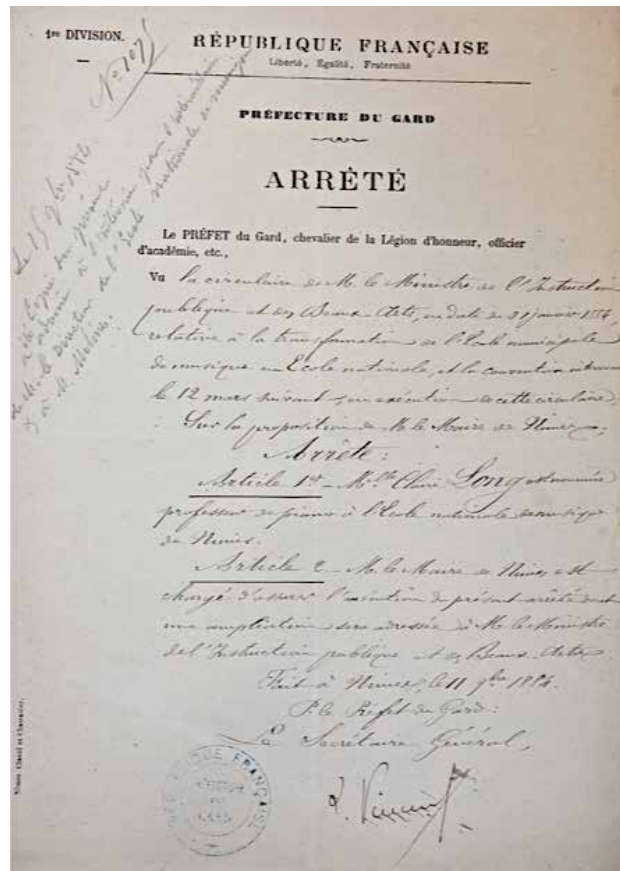 1re DIVISION.
RÉPUBLIQUE FRANÇAISE
Liberté, Egalité, Fraternité
No 107
PRÉFECTURE DU GARD
ARRÊTÉ
Le PRÉFET du Gard, chevalier de la Légion d'honneur, officier
d'académie, etc.,
Vu la circulaire de M. le Ministre de l'Instruction
publique et des Beaux-Arts, en date du 31 janvier 1884,
relative à la transformation de l'Ecole municipale
de musique en Ecole nationale, et la convention intervenue
le 12 mars suivant, en exécution de cette circulaire,
Sur la proposition de M. le Maire de Nimes,
Arrête :
Article 1er - Melle Claire Long est nommée
professeur de piano à l'Ecole nationale de musique
de Nimes.
Article 2 - M. le Maire de Nimes est
chargé d'assurer l'exécution du présent arrêté dont
une ampliation sera adressée à M. le Ministre
de l'Instruction publique et des Beaux-Arts.
Fait à Nimes, le 11 9bre 1884.
P. le Préfet du Gard :
Le Secrétaire Général,
Le 15 9bre 1884
à été copie du présent
à M. le Directeur de l'Ecole nationale de musique
FRANÇAISE